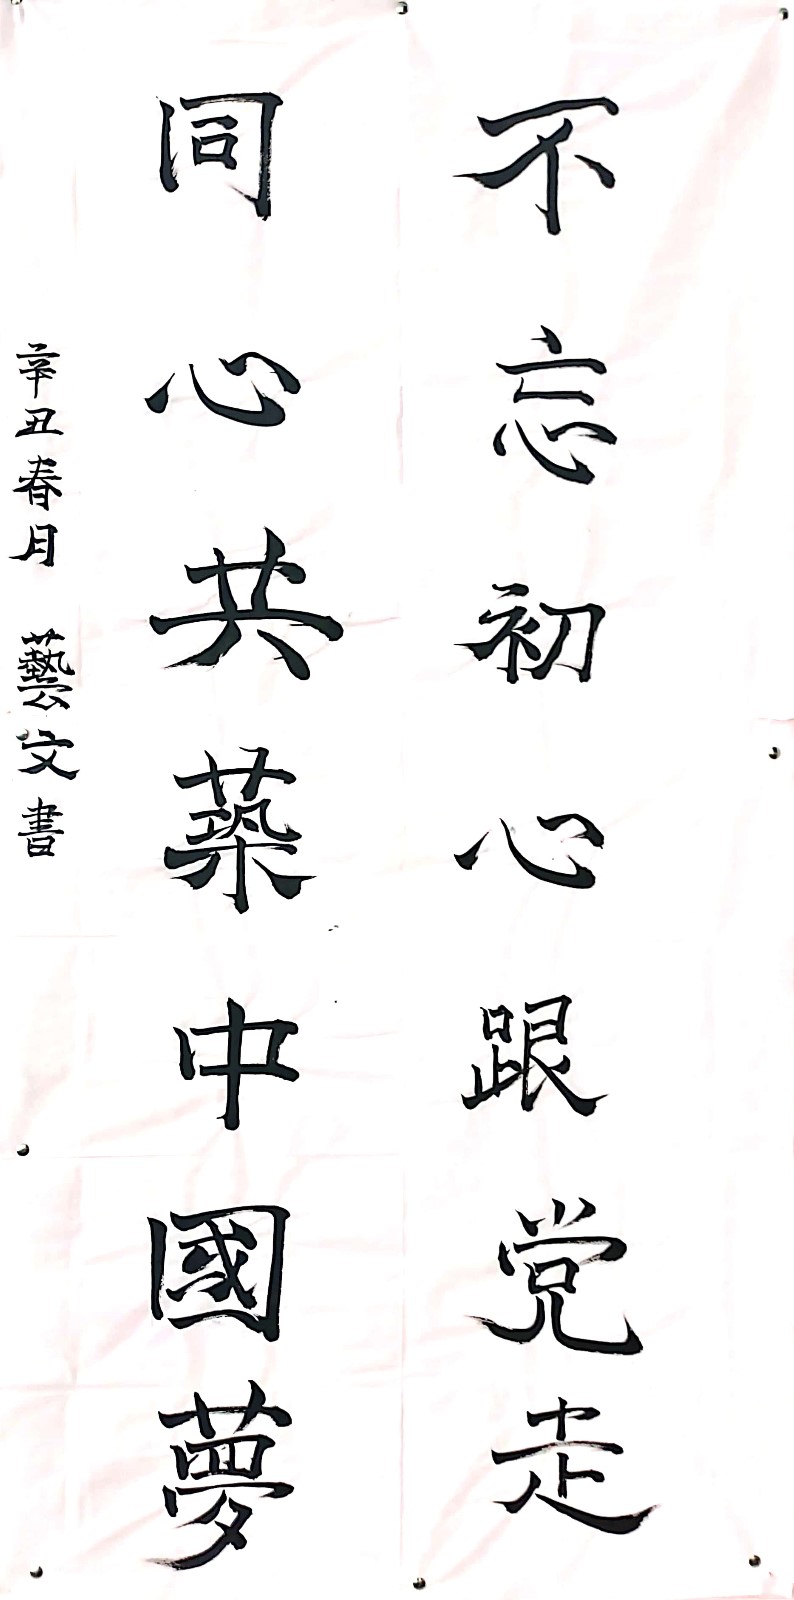 不忘初心跟党走
同心共築中國夢
辛丑春月 藝文書